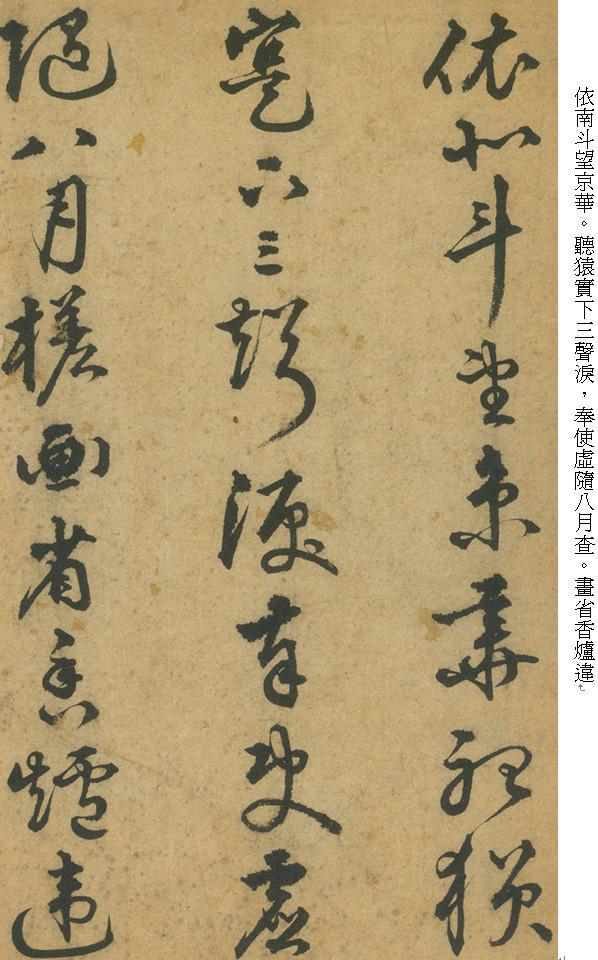 依南斗望京華。聽猿實下三聲淚，奉使虛隨八月查。畫省香爐違
依北斗望京華聽猿
寔下三聲淚奉使虛
隨八月槎画省香爐違